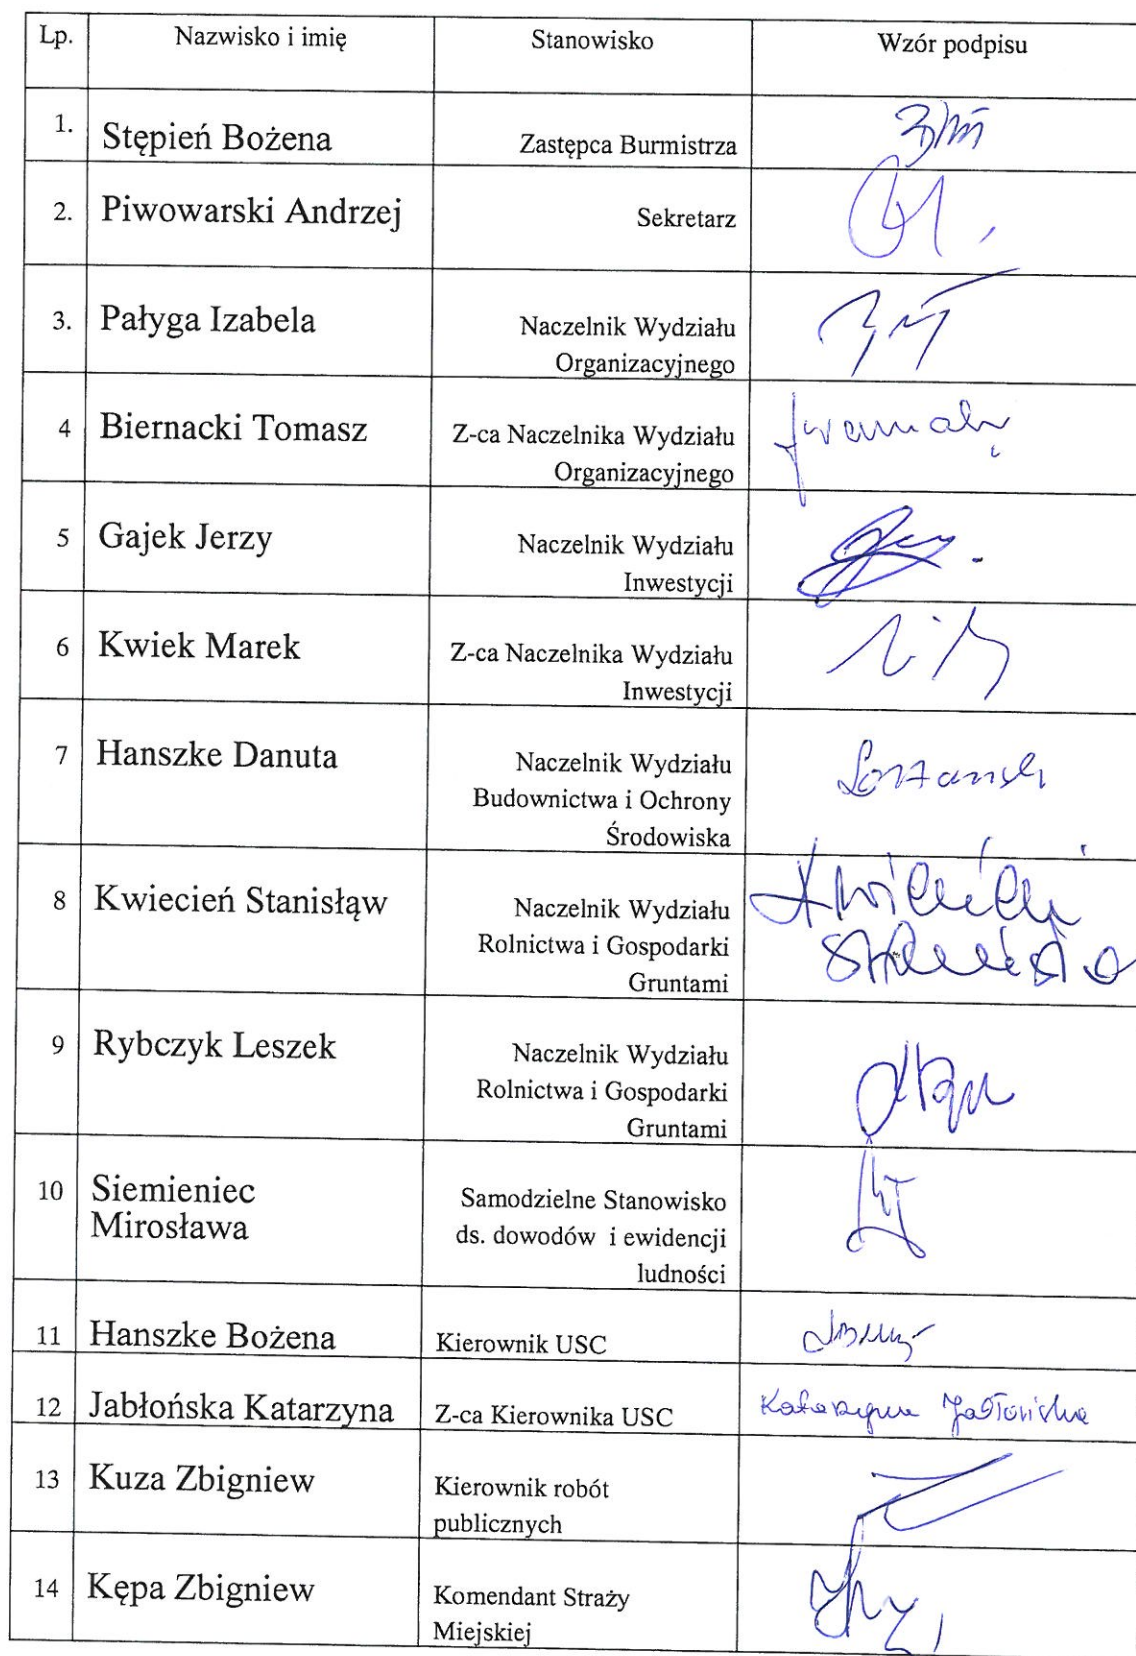 Lp. Nazwisko i imię Stanowisko Wzór podpisu
1. Stępień Bożena Zastępca Burmistrza
2. Piwowarski Andrzej Sekretarz
3. Pałyga Izabela Naczelnik Wydziału
Organizacyjnego
4 Biernacki Tomasz Z-ca Naczelnika Wydziału
Organizacyjnego
5 Gajek Jerzy Naczelnik Wydziału
Inwestycji
6 Kwiek Marek Z-ca Naczelnika Wydziału
Inwestycji
7 Hanszke Danuta Naczelnik Wydziału
Budownictwa i Ochrony
Środowiska
8 Kwiecień Stanisłąw Naczelnik Wydziału
Rolnictwa i Gospodarki
Gruntami
9 Rybczyk Leszek Naczelnik Wydziału
Rolnictwa i Gospodarki
Gruntami
10 Siemieniec Samodzielne Stanowisko
Mirosława ds. dowodów i ewidencji
ludności
11 Hanszke Bożena Kierownik USC
12 Jabłońska Katarzyna Z-ca Kierownika USC Katarzyna Jabłońska
13 Kuza Zbigniew Kierownik robót
publicznych
14 Kępa Zbigniew Komendant Straży
Miejskiej